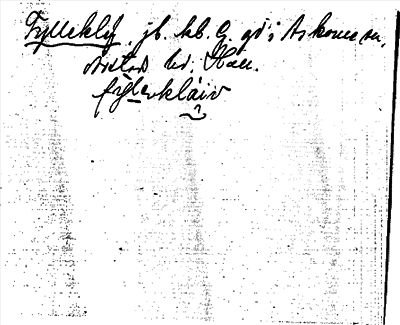 Fylleklev. jb. kb. G. gd i Askome sn,
Årstad hd. Hall.
fyl̲evkláiv